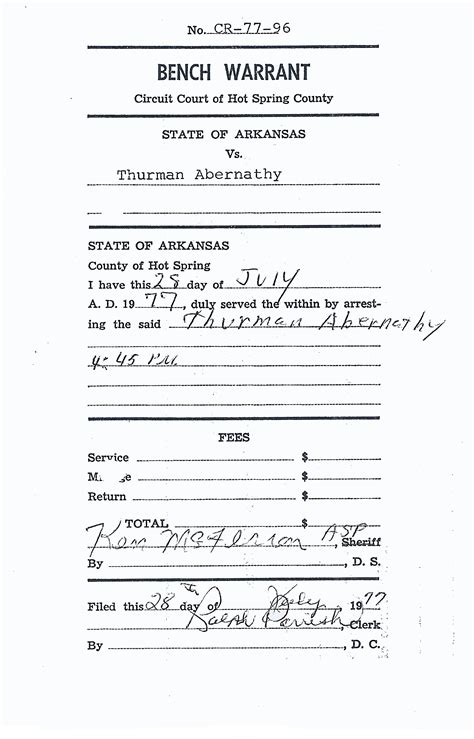 No. CR-77-96
BENCH WARRANT
Circuit Court of Hot Spring County
STATE OF ARKANSAS
Vs.
Thurman Abernathy
STATE OF ARKANSAS
County of Hot Spring
I have this 28 day of JULY
A. D. 19 77, duly served the within by arrest-
ing the said Thurman Abernathy
4:45 P.M.
FEES
Service $
Mi e $
Return $
TOTAL $
Ken McFerran ASP, Sheriff
By , D. S.
Filed this 28 day of July, 1977
Ralph Parrish, Clerk
By , D. C.